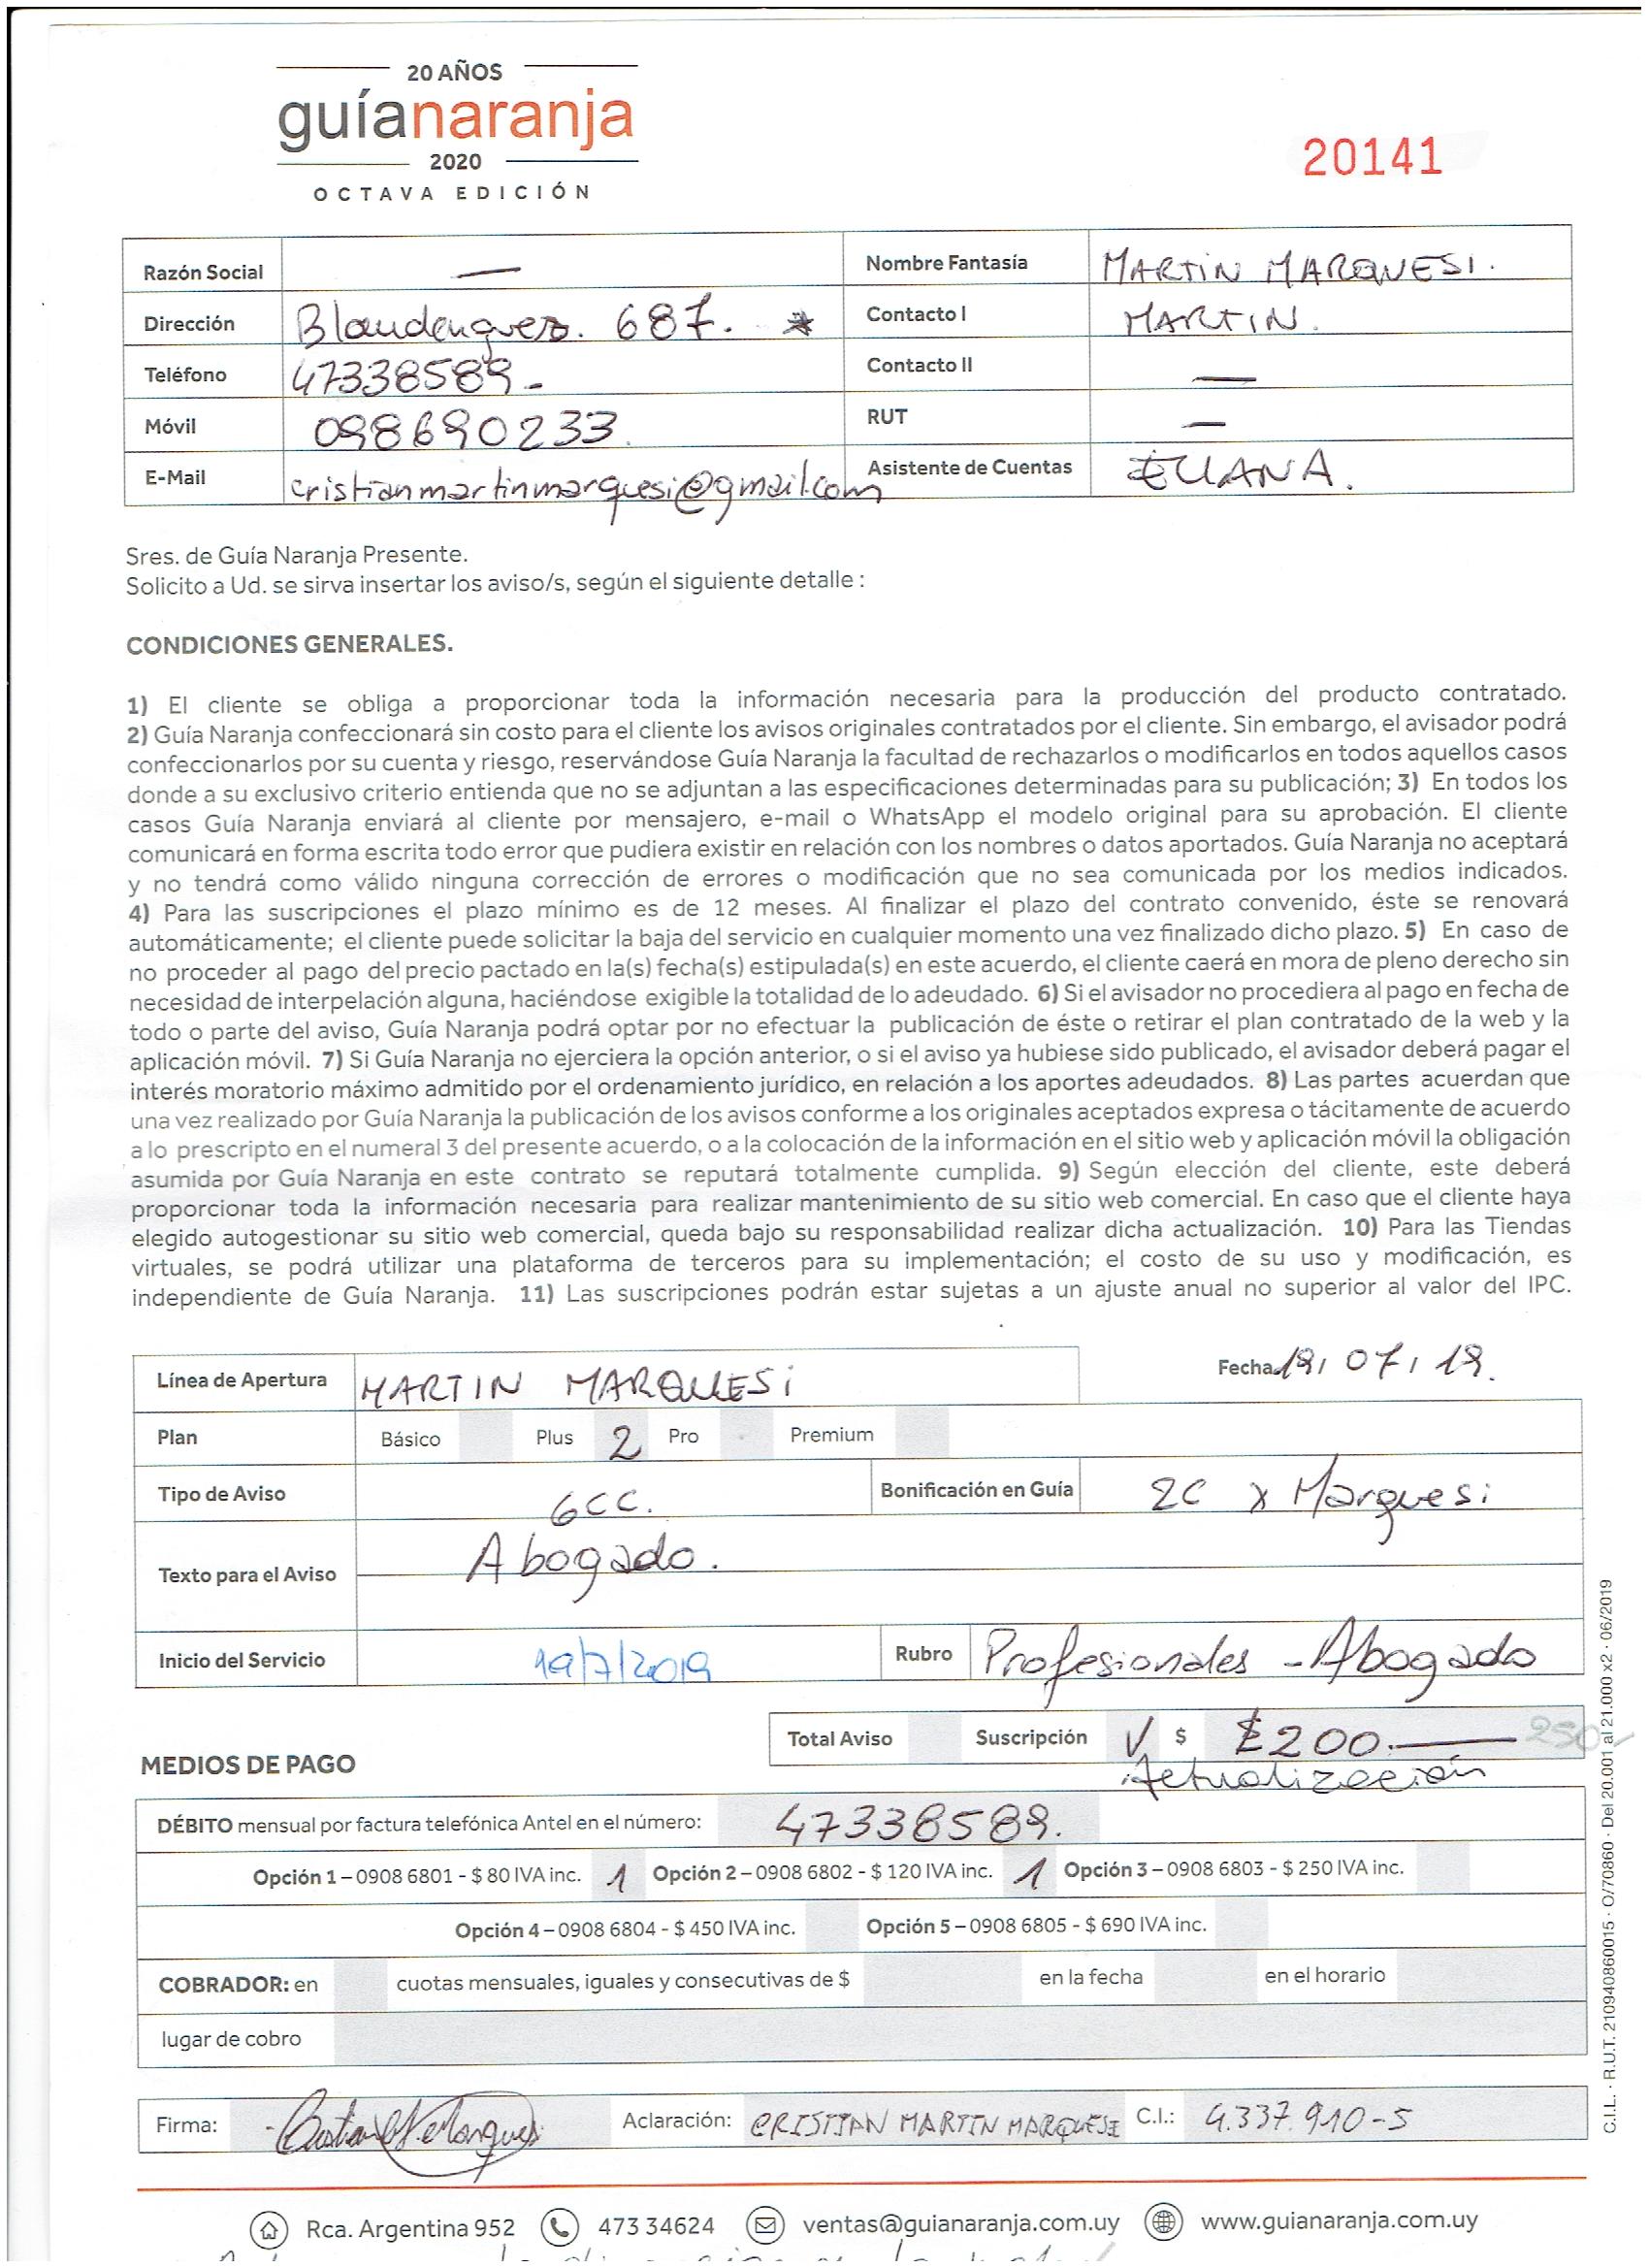 20 AÑOS
guíanaranja
2020
OCTAVA EDICIÓN
20141
Razón Social — Nombre Fantasía MARTIN MARQUESI.
Dirección Blandengues. 687. * Contacto I MARTIN.
Teléfono 47338589- Contacto II —
Móvil 098690233. RUT —
E-Mail cristianmartinmarquesi@gmail.com Asistente de Cuentas ELIANA.
Sres. de Guía Naranja Presente.
Solicito a Ud. se sirva insertar los aviso/s, según el siguiente detalle :
CONDICIONES GENERALES.
1) El cliente se obliga a proporcionar toda la información necesaria para la producción del producto contratado.
2) Guía Naranja confeccionará sin costo para el cliente los avisos originales contratados por el cliente. Sin embargo, el avisador podrá
confeccionarlos por su cuenta y riesgo, reservándose Guía Naranja la facultad de rechazarlos o modificarlos en todos aquellos casos
donde a su exclusivo criterio entienda que no se adjuntan a las especificaciones determinadas para su publicación; 3) En todos los
casos Guía Naranja enviará al cliente por mensajero, e-mail o WhatsApp el modelo original para su aprobación. El cliente
comunicará en forma escrita todo error que pudiera existir en relación con los nombres o datos aportados. Guía Naranja no aceptará
y no tendrá como válido ninguna corrección de errores o modificación que no sea comunicada por los medios indicados.
4) Para las suscripciones el plazo mínimo es de 12 meses. Al finalizar el plazo del contrato convenido, éste se renovará
automáticamente; el cliente puede solicitar la baja del servicio en cualquier momento una vez finalizado dicho plazo. 5) En caso de
no proceder al pago del precio pactado en la(s) fecha(s) estipulada(s) en este acuerdo, el cliente caerá en mora de pleno derecho sin
necesidad de interpelación alguna, haciéndose exigible la totalidad de lo adeudado. 6) Si el avisador no procediera al pago en fecha de
todo o parte del aviso, Guía Naranja podrá optar por no efectuar la publicación de éste o retirar el plan contratado de la web y la
aplicación móvil. 7) Si Guía Naranja no ejerciera la opción anterior, o si el aviso ya hubiese sido publicado, el avisador deberá pagar el
interés moratorio máximo admitido por el ordenamiento jurídico, en relación a los aportes adeudados. 8) Las partes acuerdan que
una vez realizado por Guía Naranja la publicación de los avisos conforme a los originales aceptados expresa o tácitamente de acuerdo
a lo prescripto en el numeral 3 del presente acuerdo, o a la colocación de la información en el sitio web y aplicación móvil la obligación
asumida por Guía Naranja en este contrato se reputará totalmente cumplida. 9) Según elección del cliente, este deberá
proporcionar toda la información necesaria para realizar mantenimiento de su sitio web comercial. En caso que el cliente haya
elegido autogestionar su sitio web comercial, queda bajo su responsabilidad realizar dicha actualización. 10) Para las Tiendas
virtuales, se podrá utilizar una plataforma de terceros para su implementación; el costo de su uso y modificación, es
independiente de Guía Naranja. 11) Las suscripciones podrán estar sujetas a un ajuste anual no superior al valor del IPC.
Línea de Apertura MARTIN MARQUESI Fecha 19/ 07/ 19.
Plan Básico Plus 2 Pro Premium
Tipo de Aviso 6CC. Bonificación en Guía 2C x Marquesi
Texto para el Aviso Abogado.
Inicio del Servicio 19/7/2019 Rubro Profesionales - Abogado
Total Aviso Suscripción √ $ $200.— 250.-
MEDIOS DE PAGO Actualización
DÉBITO mensual por factura telefónica Antel en el número: 47338589.
Opción 1 – 0908 6801 - $ 80 IVA inc. 1 Opción 2 – 0908 6802 - $ 120 IVA inc. 1 Opción 3 – 0908 6803 - $ 250 IVA inc.
Opción 4 – 0908 6804 - $ 450 IVA inc. Opción 5 – 0908 6805 - $ 690 IVA inc.
COBRADOR: en cuotas mensuales, iguales y consecutivas de $ en la fecha en el horario
lugar de cobro
Firma: Aclaración: CRISTIAN MARTIN MARQUESI C.I.: 4.337.910-5
Rca. Argentina 952 473 34624 ventas@guianaranja.com.uy www.guianaranja.com.uy
C.I.L. · R.U.T. 210940860015 · O/70860 · Del 20.001 al 21.000 x2 · 06/2019